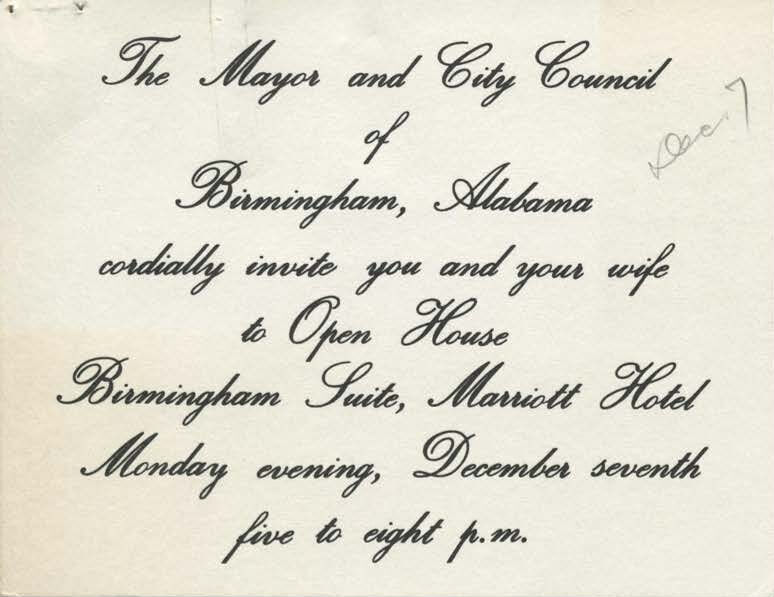 The Mayor and City Council
of
Birmingham, Alabama
cordially invite you and your wife
to Open House
Birmingham Suite, Marriott Hotel
Monday evening, December seventh
five to eight p.m.
Dec. 7